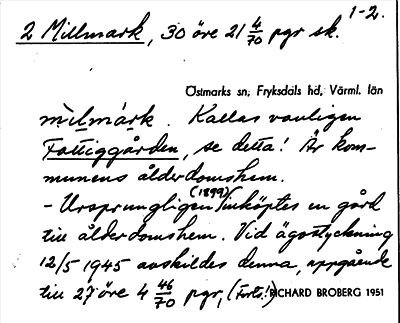 1-2.
2 Millmark, 30 öre 21 4/70 pgr sk.
Östmarks sn, Fryksdals hd, Värml. län
mìlmárk. Kallas vanligen
Fattiggården, se detta! Är kom-
munens ålderdomshem.
- Ursprungligen (1899) inköptes en gård
till ålderdomshem. Vid ägostyckning
12/5 1945 avskildes denna, uppgående
till 27 öre 4 46/70 pgr, (Forts.!) RICHARD BROBERG 1951